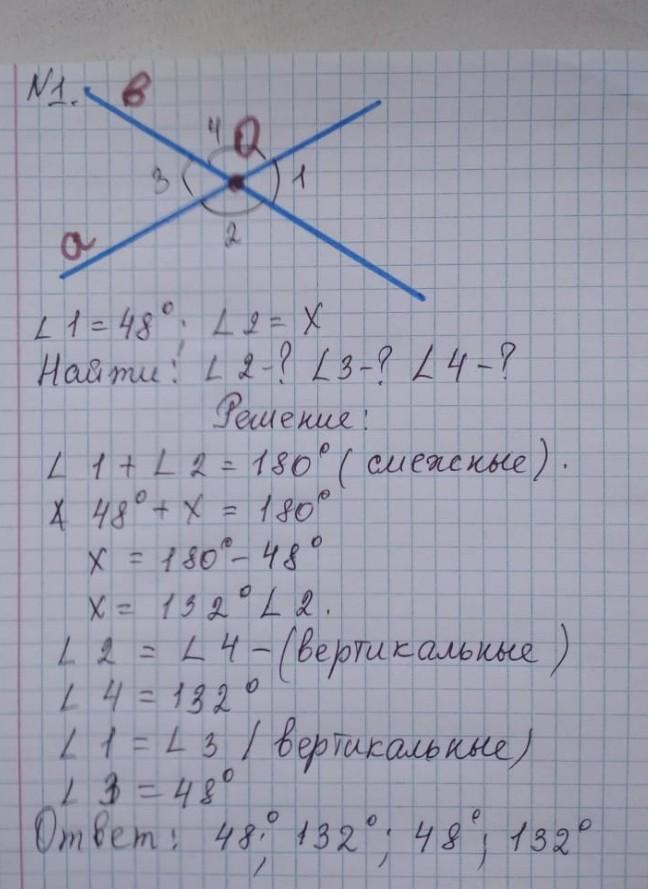 №1.
в
4 О
3 1
2
а
∠1 = 48°; ∠2 = х
Найти: ∠2-? ∠3-? ∠4-?
Решение:
∠1 + ∠2 = 180° (смежные).
48° + х = 180°
х = 180° - 48°
х = 132° ∠2.
∠2 = ∠4 - (вертикальные)
∠4 = 132°
∠1 = ∠3 (вертикальные)
∠3 = 48°
Ответ: 48°; 132°; 48°; 132°